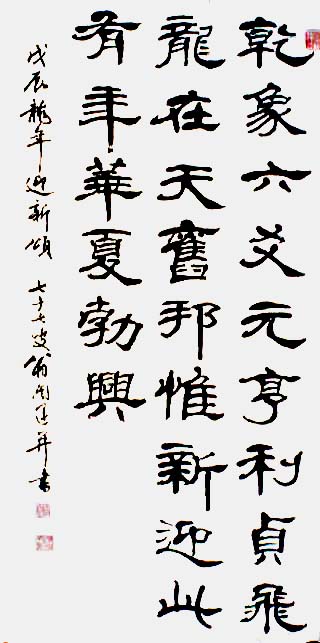 乾象六爻元亨利貞飛
龍在天舊邦惟新迎此
有年華夏勃興
戊辰龍年迎新頌 七十七叟翁闓運并書